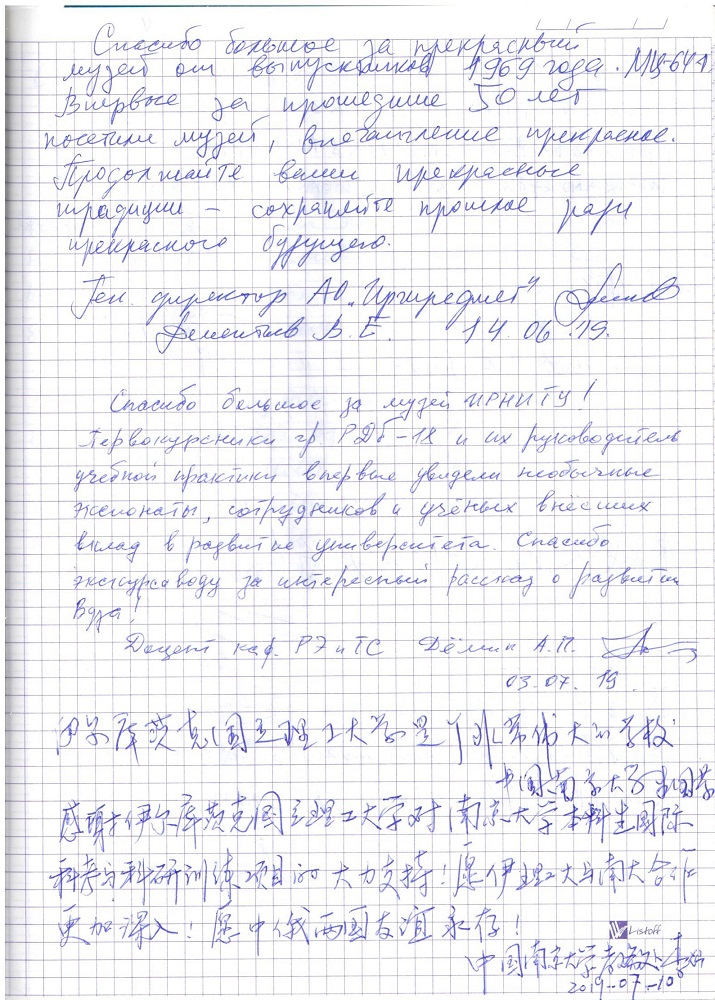 Спасибо большое за прекрасный
музей от выпускников 1969 года. МЦ-64-1
Впервые за прошедшие 50 лет
посетили музей, впечатление прекрасное.
Продолжайте ваши прекрасные
традиции – сохраняйте прошлое ради
прекрасного будущего.
Ген. директор АО "Иргиредмет"
Дементьев В.Е. 14.06.19.
Спасибо большое за музей ИРНИТУ!
Первокурсники гр РДб-18 и их руководитель
учебной практики впервые увидели необычные
экспонаты, сотрудников и учёных внёсших
вклад в развитие университета. Спасибо
экскурсоводу за интересный рассказ о развитии
Вуза!
Доцент каф. РЭиТС Дёмин А.П.
03.07.19.
伊尔库茨克国立理工大学是个非常伟大的学校
中国南京大学
感谢伊尔库茨克国立理工大学对南京大学本科生国际
科考与科研训练项目的大力支持！愿伊理工大与南大合作
更加深入！愿中俄两国友谊永存！
Listoff
中国南京大学
2019-07-10